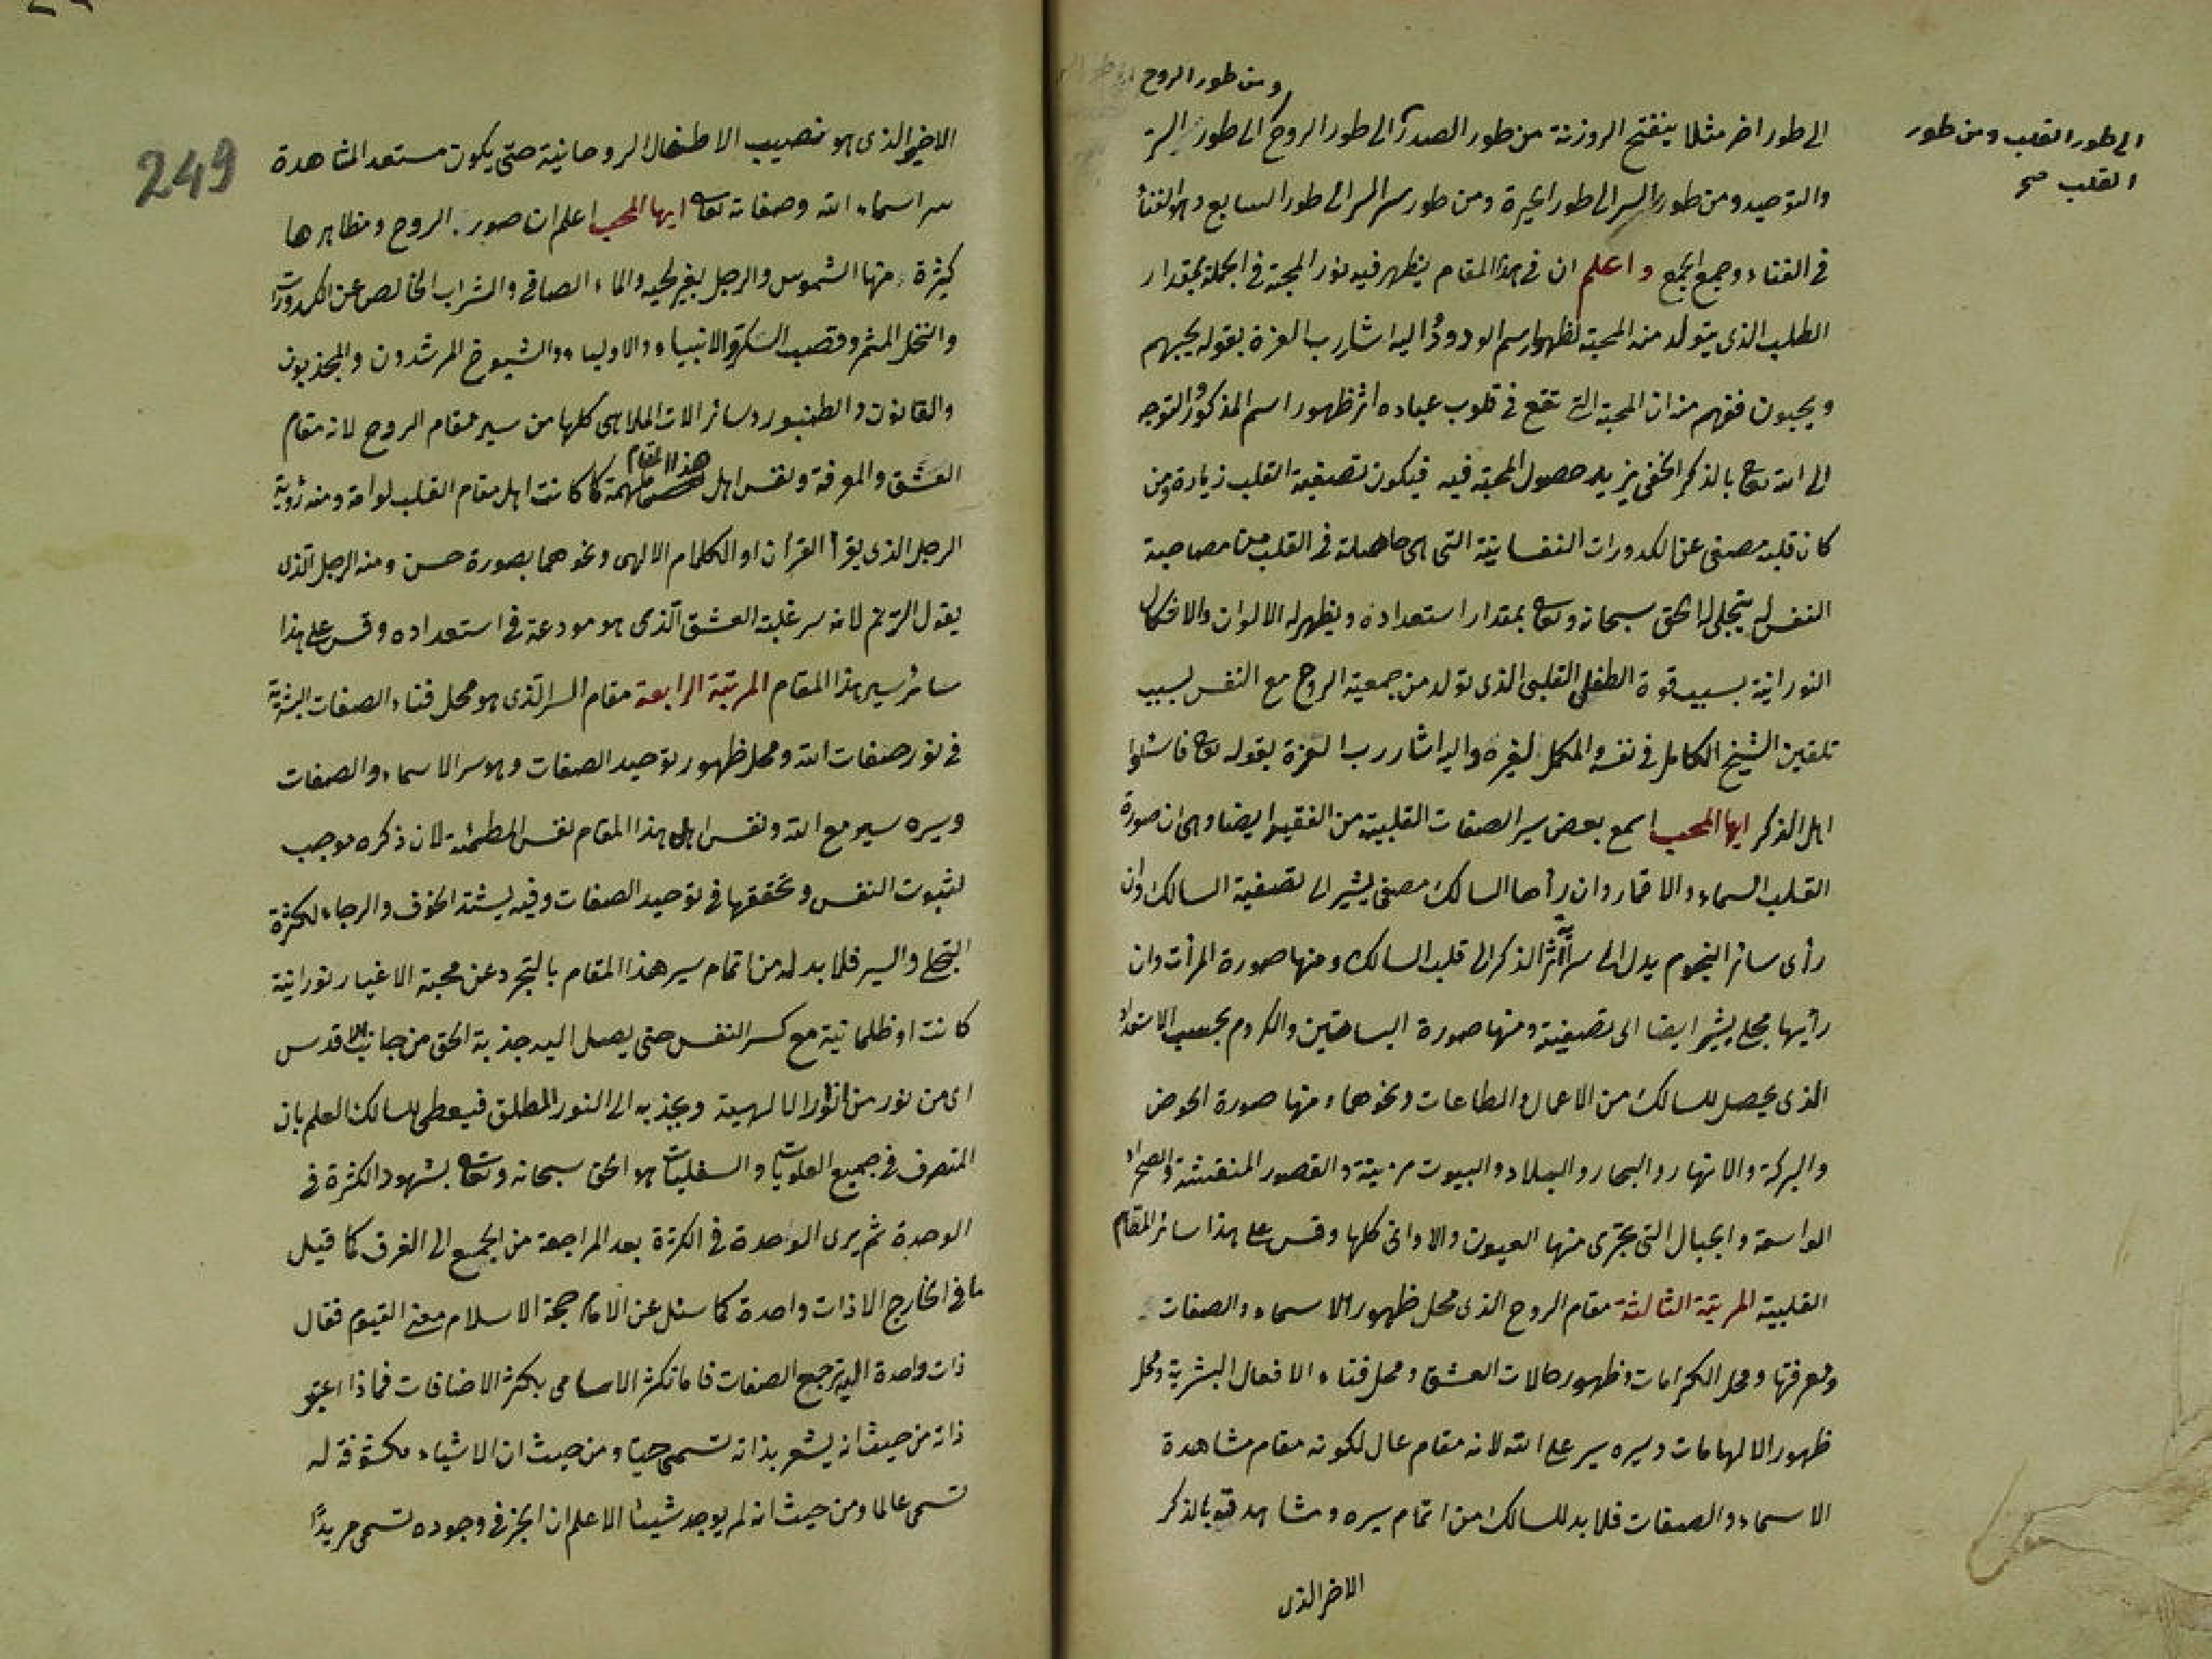 ومن طور الروح
الى طور القلب ومن طور
القلب صح
الى طور اخر مثلا ينفتح الروزنة من طور الصدر الى طور الروح الى طور السر
والتوحيد ومن طور السر الى طور الحيرة ومن طور سر السر الى طور السابع وهو الفناء
فى الفناء وجمع الجمع واعلم ان فى هذا المقام يظهر فيه نور المحبة فى الجملة بمقدار
الطلب الذى يتولد منه المحبة لظهور اسم الودود واليه اشار رب العزة بقوله يحبهم
ويحبون ففهم منه ان المحبة التى تقع فى قلوب عباده اثر ظهور اسم المذكور والتوجه
الى الله تعالى بالذكر الخفى يزيد حصول المحبة فيه فيكون تصفية القلب زيادة ومن
كان قلبه مصفى عن الكدورات النفسانية التى هى حاصلة فى القلب من مصاحبة
النفس له يتجلى له الحق سبحانه وتعالى بمقدار استعداده ويظهر له الالوان والاشكال
النورانية بسبب قوة الطفل القلبى الذى تولد من جمعية الروح مع النفس بسبب
تلقين الشيخ الكامل فى نفسه والمكمل لغيره واليه اشار رب العزة بقوله تعالى فاسئلوا
اهل الذكر ايها المحب اسمع بعض سير الصفات القلبية من الفقير ايضا وهى ان صورة
القلب السماء والاقمار وان رأها السالك مصفى يشير الى تصفية السالك وان
رأى سائر النجوم يدل الى سراية اثر الذكر الى قلب السالك ومنها صورة المرأت وان
رأيها مجلى يشير ايضا الى تصفيته ومنها صورة البساتين والكروم بحسب الاستعداد
الذى يحصل للسالك من الاعمال والطاعات ونحوهما ومنها صورة الحوض
والبركة والانهار والبحار والبلاد والبيوت مزينة والقصور المنقشة والصحراء
الواسعة والجبال التى تجرى منها العيون والاوانى كلها وقس على هذا سائر المقام
القلبية المرتبة الثالثة مقام الروح الذى محل ظهور الاسماء والصفات
ومعرفتها ومحل الكرامات وظهور حالات العشق ومحل فناء الافعال البشرية ومحل
ظهور الالهامات وسيره سير على الله لانه مقام عال لكونه مقام مشاهدة
الاسماء والصفات فلا بد للسالك من اتمام سيره ومشاهدته بالذكر
الاخر الذى
249
الاخير الذى هو نصيب الاطفال الروحانية حتى يكون مستعد المشاهدة
سر اسماء الله وصفاته تعالى ايها المحب اعلم ان صور الروح ومظاهرها
كثيرة منها الشموس والرجل بغير لحيه والماء الصافى والشراب الخالص عن الكدورات
والنخل المثمر وقصب السكر والانبياء والاولياء والشيوخ المرشدون والمجذبون
والقانون والطنبور وسائر الات الملاهى كلها من سير مقام الروح لانه مقام
العشق والمعرفة ونفس اهل هذا المقام ملهمة كما كانت اهل مقام القلب لوامة ومنه رؤية
الرجل الذى يقرأ القرأن او الكلام الالهى ونحوهما بصورة حسن ومنه الرجل الذى
يقول الترنم لانه سر غلبة العشق الذى هو مودعة فى استعداده وقس على هذا
سائر سير هذا المقام المرتبة الرابعة مقام السر الذى هو محل فناء الصفات البشرية
فى نور صفات الله ومحل ظهور توحيد الصفات وهو سر الاسماء والصفات
وسيره سير مع الله ونفس اهل هذا المقام نفس المطمئنة لان ذكره موجب
لثبوت النفس وتحققها فى توحيد الصفات وفيه يشتد الخوف والرجاء لكثرة
التجلى والسير فلا بد له من اتمام سير هذا المقام بالتجرد عن محبة الاغيار نورانية
كانت او ظلمانية مع كسر النفس حتى يصل اليه جذبة الحق من جانب الاقدس
اى من نور من انوار الالهية ويجذبه الى النور المطلق فيعطى للسالك العلم بان
المتصرف فى جميع العلويات والسفليات هو الحق سبحانه وتعالى بشهود الكثرة فى
الوحدة ثم يرى الواحدة فى الكثرة بعد المراجعة من الجمع الى الفرق كما قيل
ما فى الخارج الا ذات واحدة كما سئل عن الامام حجة الاسلام معنى القيوم فقال
ذات واحدة اليه ترجع الصفات فاما تكثر الاسامى بكثرة الاضافات فماذا اعتبر
ذاته من حيث انه يشعر بذاته تسمى حيا ومن حيث ان الاشياء مكشوفة له
تسمى عالما ومن حيث انه لم يوجد شيئا الا علم ان الخير فى وجوده تسمى مريدًا